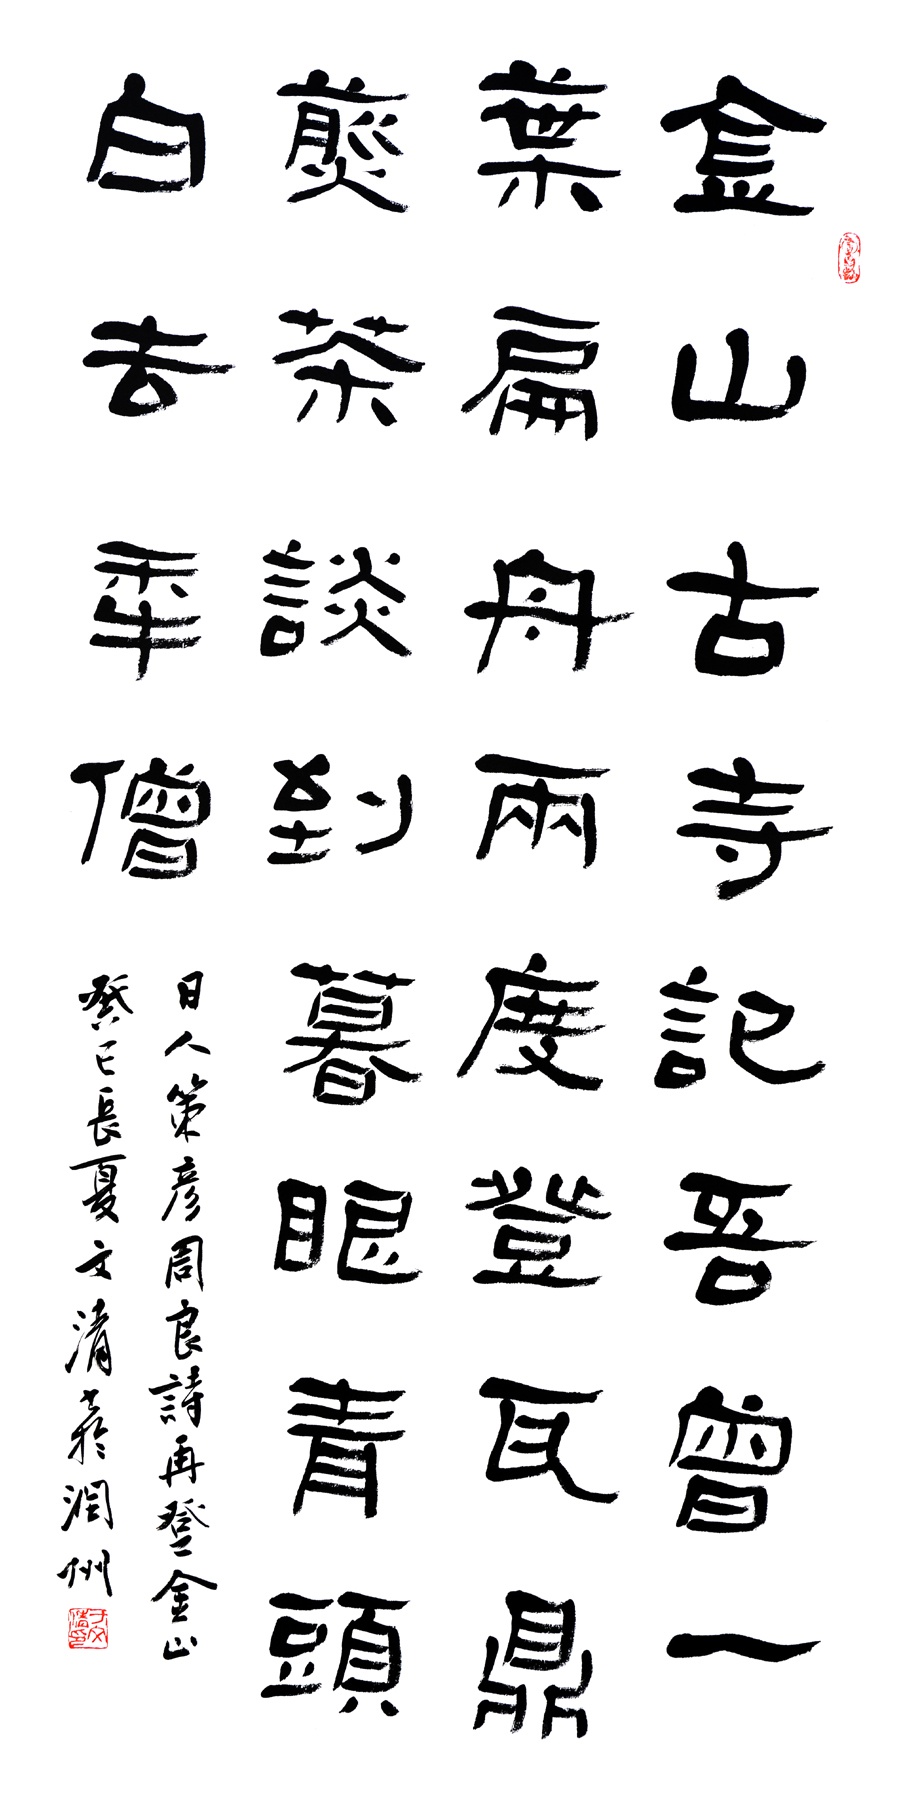 金山古寺記吾曾一
葉扁舟兩度登瓦鼎
煎茶談到暮眼青頭
白去年僧
日人策彥周良詩再登金山
癸巳長夏文清書於潤州
于文清印